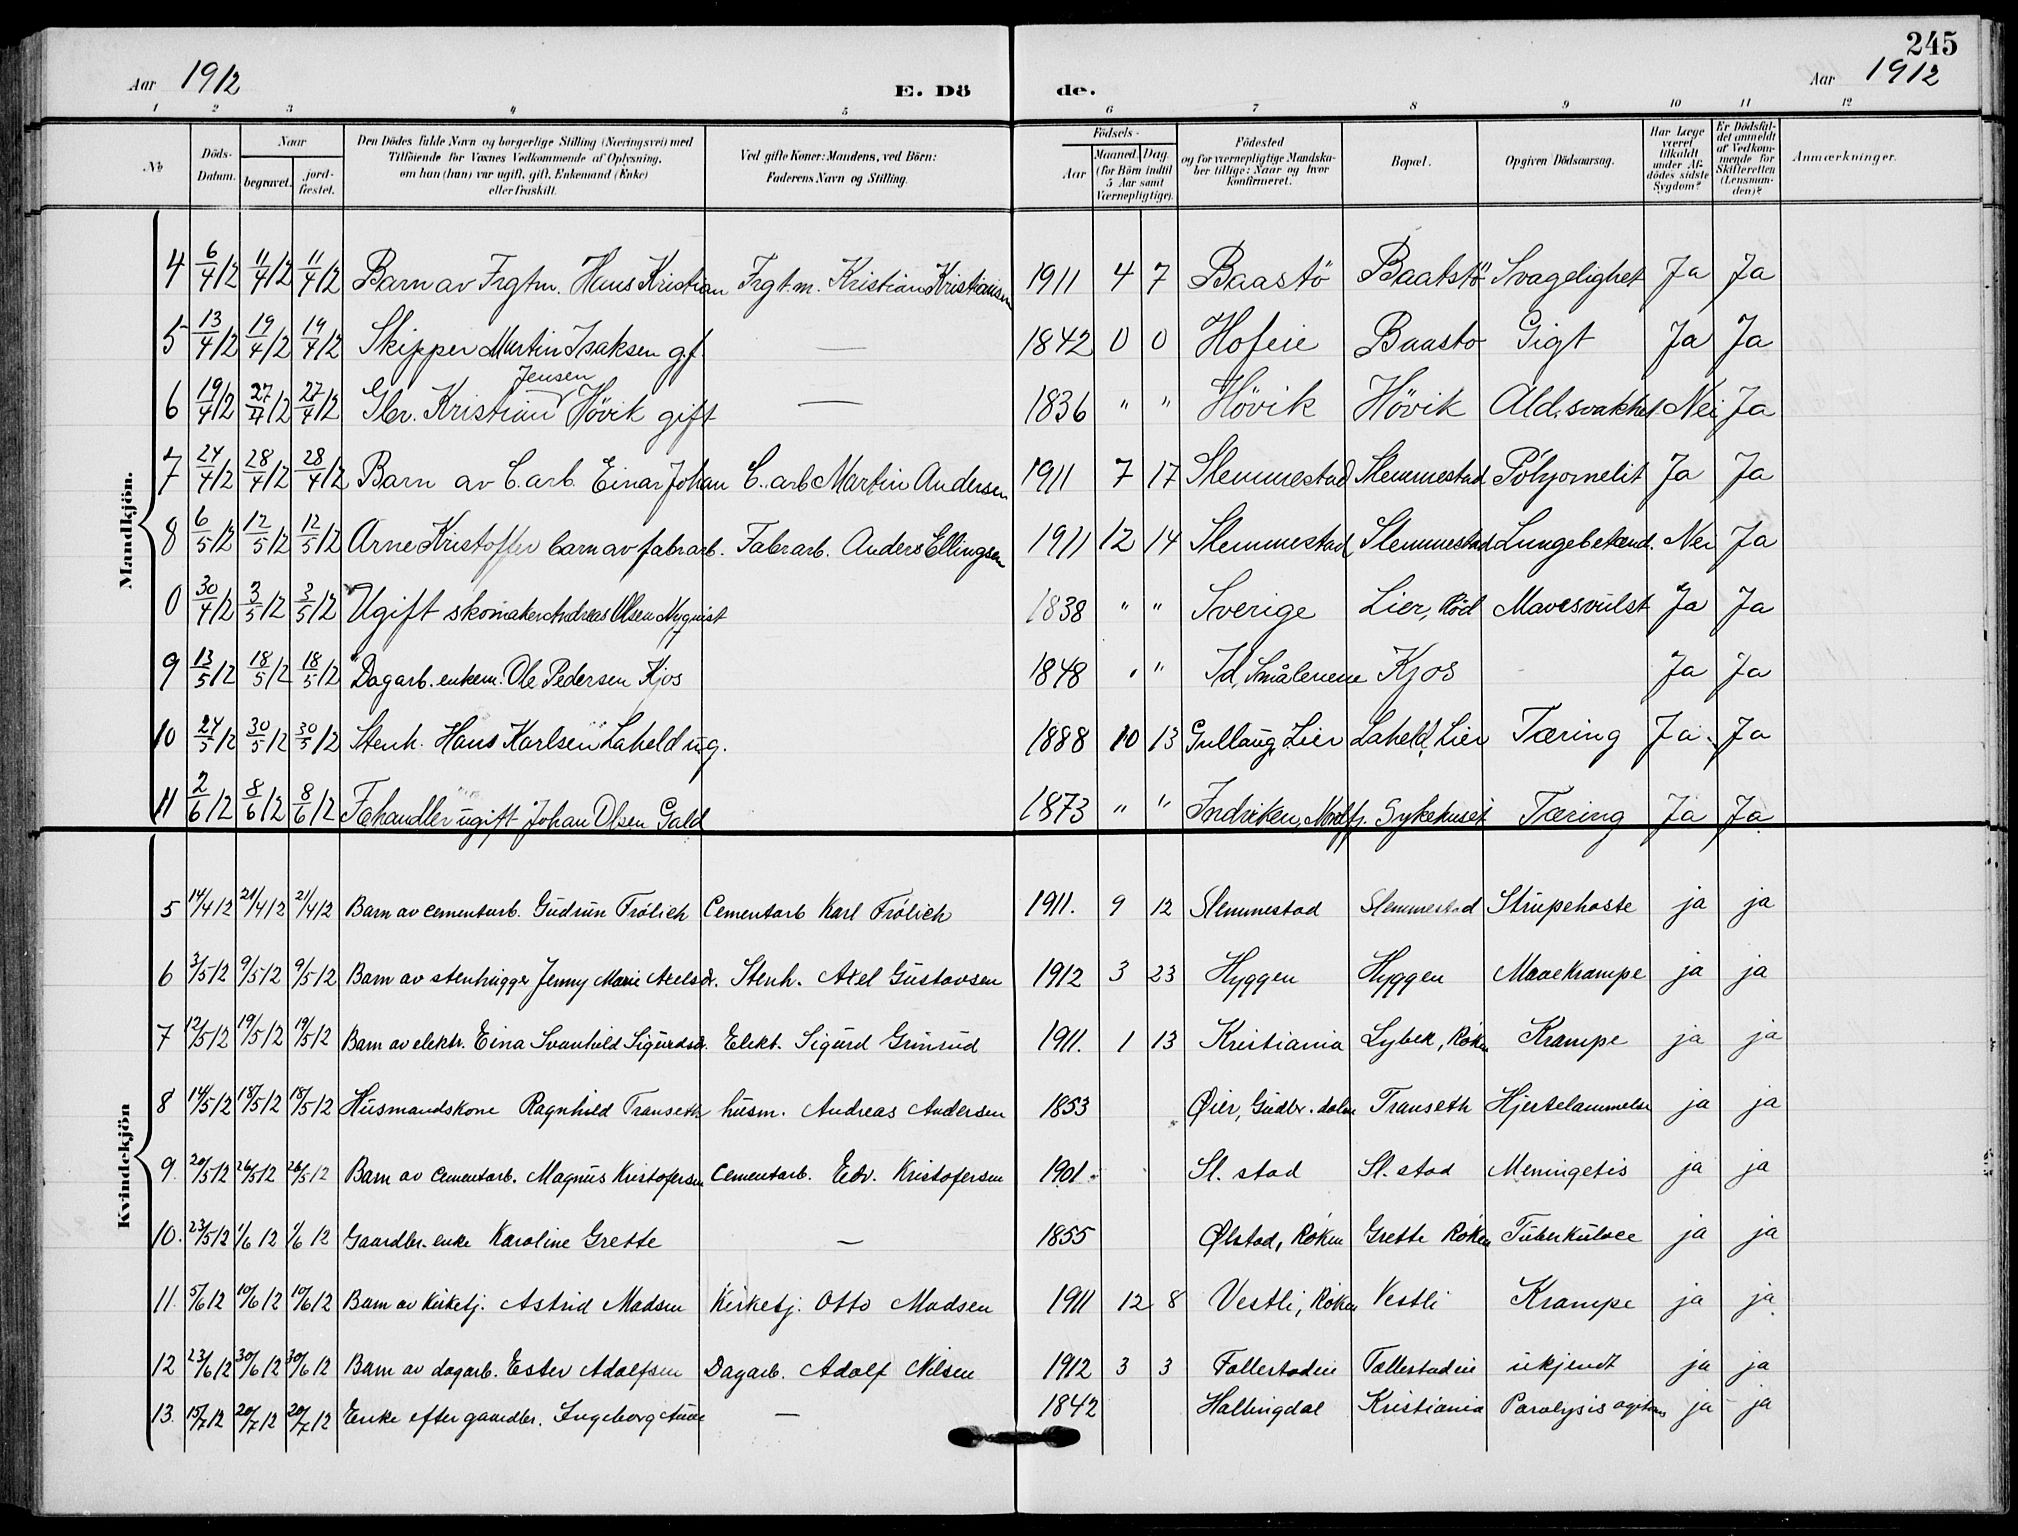 245
Aar 1912 E. Dö de. Aar 1912
1 2 3 4 5 6 7 8 9 10 11 12
No Döds-Datum. Naar begravet. jord-fæstet. Den Dödes fulde Navn og borgerlige Stilling (Næringsvei) med Tilföiende for Voxnes Vedkommende af Oplysning, om han (hun) var ugift, gift, Enkemand (Enke) eller fraskilt. Ved gifte Koner: Mandens, ved Börn: Faderens Navn og Stilling. Födsels- Aar Maaned. Dag. (for Börn indtil 5 Aar samt Værnepligtige). Födested og for værnepligtige Mandskaber tillige: Naar og hvor Konfirmeret. Bopæl. Opgiven Dödsaarsag. Har Læge været tilkaldt under Afdödes sidste Sygdom? Er Dödsfaldet anmeldt af Vedkommende for Skifteretten (Lensmanden)? Anmærkninger.
Mandkjön.
4 6/4 12 11/4 12 11/4 12 Barn av Frgtm. Hans Kristian Frgt.m. Kristian Kristiansen 1911 4 7 Baastö Baatstö Svagelighet Ja Ja
5 13/4 12 19/4 12 19/4 12 Skipper Martin Isaksen gf. — 1842 0 0 Hofeie Baasto Gigt Ja Ja
6 19/4 12 27/4 12 27/4 12 Gbr. Kristian Jensen Hövik gift — 1836 " " Hövik Hövik Ald. svakhet Nei Ja
7 24/4 12 28/4 12 28/4 12 Barn av C. arb. Einar Johan C. arb Martin Andersen 1911 7 17 Slemmestad Slemmestad Ja Ja
8 6/5 12 12/5 12 12/5 12 Arne Kristoffer barn av fabrarb. Fabrarb. Anders Ellingsen 1911 12 14 Slemmestad Slemmestad Lungebetænd. Nei Ja
0 30/4 12 3/5 12 3/5 12 Ugift skomaker Andreas Olsen Nyquist 1838 " " Sverige Lier, Röd Mavesvulst Ja Ja
9 13/5 12 18/5 12 18/5 12 Dagarb. enkem. Ole Pedersen Kjos 1848 " " Id, Smålenene Kjos Ja Ja
10 24/5 12 30/5 12 30/5 12 Stenh. Hans Karlsen Laheld ug. 1888 10 13 Gullaug, Lier Laheld, Lier Tæring Ja Ja
11 2/6 12 8/6 12 8/6 12 Fæhandler ugift Johan Olsen Gald 1873 " " Indviken, Nordfj. Sykehuset Tæring Ja Ja
Kvindekjön
5 14/4 12 21/4 12 21/4 12 Barn av cementarb. Gudrun Frölich Cementarb Karl Frölich 1911. 9 12 Slemmestad Slemmestad Strupehoste ja ja
6 3/5 12 9/5 12 9/5 12 Barn av stenhugger Jenny Marie Axelsdr. Stenh. Axel Gustavsen 1912 3 23 Hyggen Hyggen Mavekrampe ja ja
7 12/5 12 19/5 12 19/5 12 Barn av elektr. Eina Svanhild Sigurdsdr. Elekt. Sigurd Grinrud 1911. 1 13 Kristiania Lybek, Röken Krampe ja ja
8 14/5 12 18/5 12 18/5 12 Husmandskone Ragnhild Transeth husm. Andreas Andersen 1853 Øier, Gudbr. dalen Transeth Hjertelammelse ja ja
9. 20/5 12 26/5 12 26/5 12 Barn av cementarb. Magnus Kristofersen Cementarb. Edv. Kristofersen 1901. Sl. stad Sl. stad Meningetis ja ja
10. 23/5 12 1/6 12 1/6 12 Gaardbr. enke Karoline Grette — 1855 Ølstad, Röken Grette Röken Tuberkulose ja ja
11. 5/6 12 10/6 12 10/6 12 Barn av kirketj. Astrid Madsen Kirketj. Otto Madsen 1911 12 8 Vestli, Röken Vestli Krampe ja ja
12 23/6 12 30/6 12 30/6 12 Barn av dagarb. Ester Adolfsen Dagarb. Adolf Nilsen 1912 3 3 Follestadeie Follestadeie ukjendt ja ja
13. 15/7 12 20/7 12 20/7 12 Enke efter gaardbr. Ingeborg — 1842 Hallingdal Kristiania Paralysis agitans ja ja